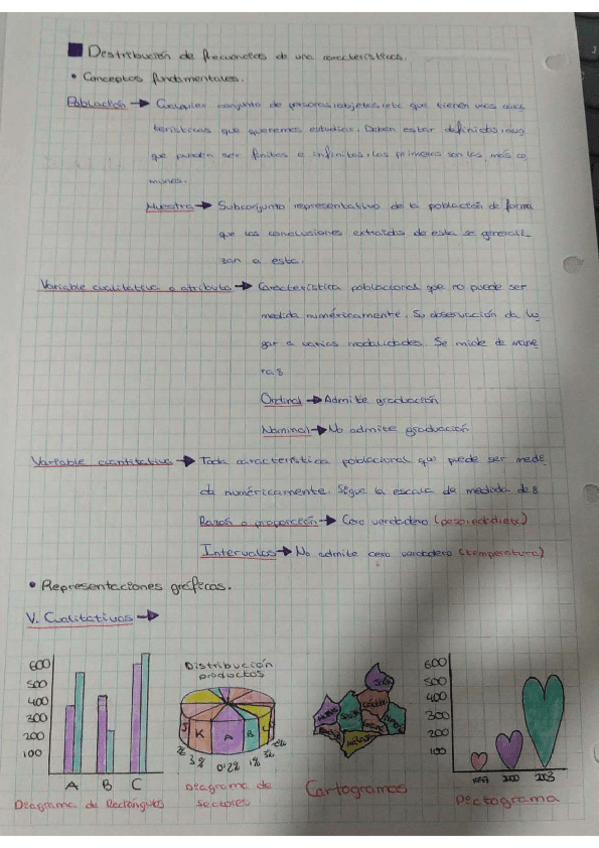 Distribución de frecuencias de una característica.
• Conceptos fundamentales.
Población → Cualquier conjunto de personas, objetos, etc que tienen unas carac
terísticas que queremos estudiar. Deben estar definidos, aun
que pueden ser finitos e infinitos, los primeros son los más co
munes.
Muestra → Subconjunto representativo de la población de forma
que las conclusiones extraídas de esta se generali
zan a esta.
Variable cualitativa o atributo → Característica poblacional que no puede ser
medida numéricamente. Su observación da lu
gar a varias modalidades. Se mide de mane
ra:
Ordinal → Admite graduación
Nominal → No admite graduación
Variable cuantitativa → Toda característica poblacional que puede ser medi
da numéricamente. Sigue la escala de medida de:
Razón o proporción → Cero verdadero (peso, edad, etc)
Intervalos → No admite cero verdadero (temperatura)
• Representaciones gráficas.
V. Cualitativas →
600
500
400
300
200
100
A B C
Diagrama de Rectángulos
Distribución
productos
J K A B L
3% 0'2% 1%
Diagrama de
sectores
Jaén
Cádiz
Cartogramas
600
500
400
300
200
100
1997 2000 2003
Pictograma